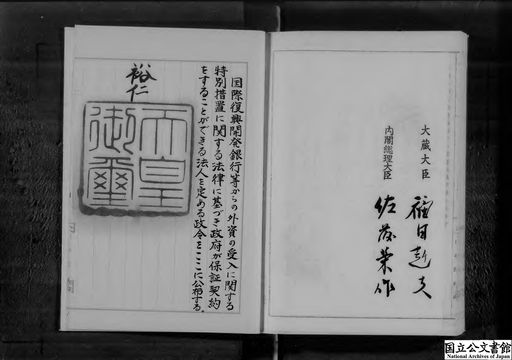 国際復興開発銀行等からの外資の受入に関する
特別措置に関する法律に基づき政府が保証契約
をすることができる法人を定める政令をここに公布する。
裕仁
天皇
御璽
大蔵大臣
福田赳夫
内閣総理大臣
佐藤榮作
国立公文書館
National Archives of Japan